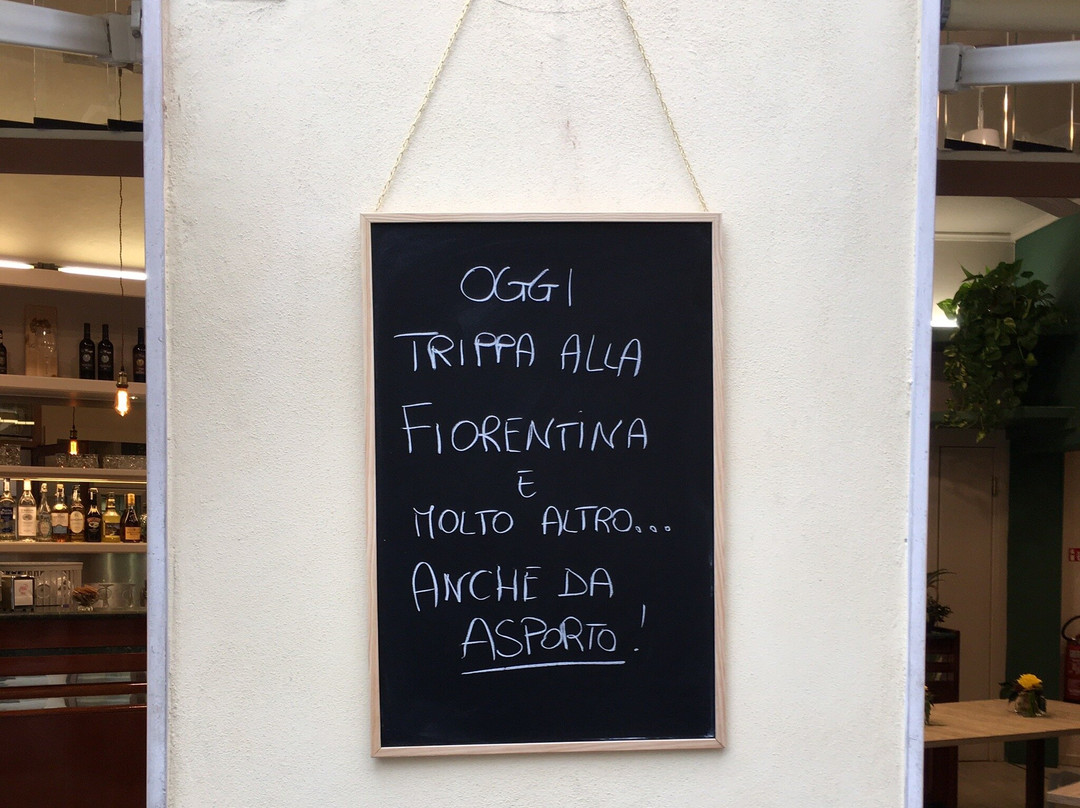 OGGI
TRIPPA ALLA
FIORENTINA
E
MOLTO ALTRO...
ANCHE DA
ASPORTO!